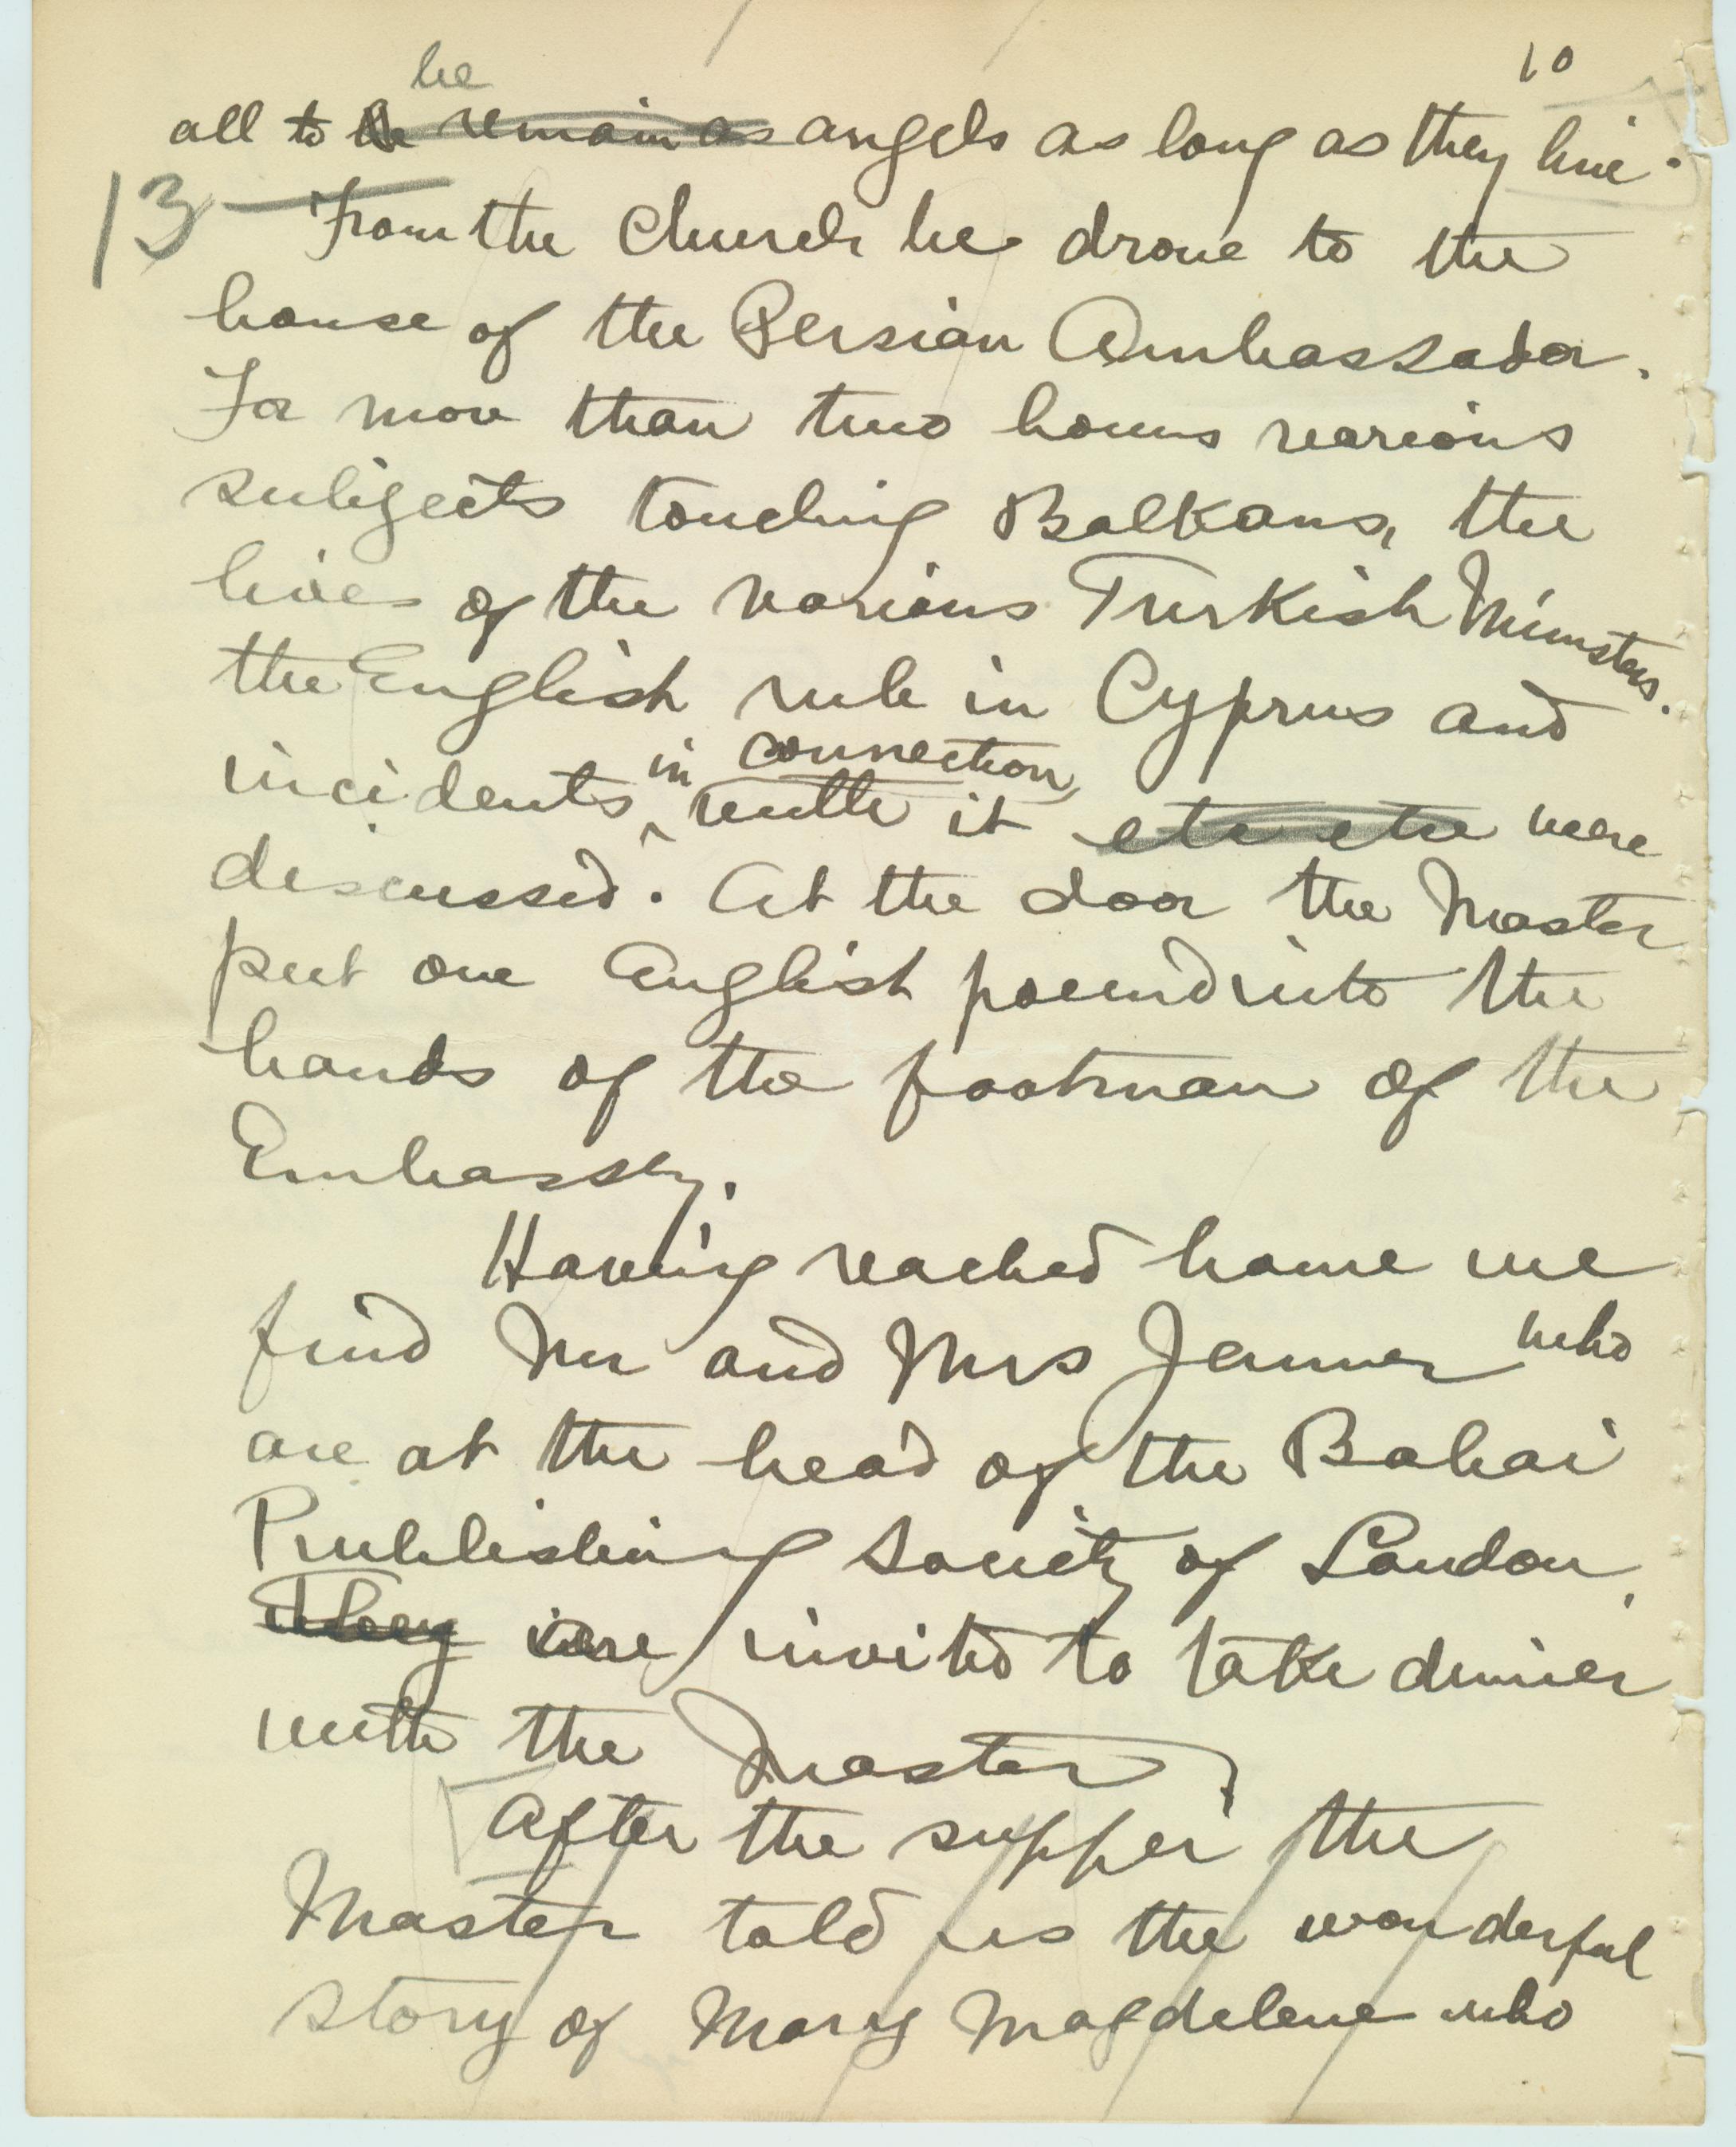 10
be
all to be remain as angels as long as they live.
13 From the Church he drove to the
house of the Persian Ambassador.
For more than two hours various
subjects touching Balkans, the
lives of the various Turkish Ministers.
the English rule in Cyprus and
in connection
incidents ^ with it etc etc were
discussed. At the door the Master
put one English pound into the
hands of the footman of the
Embassy.
Having reached home we
find Mr and Mrs Jenner who
are at the head of the Bahai
Publishing Society of London.
They were invited to take dinner
with the Master.
After the supper the
Master told us the wonderful
story of Mary Magdelene who